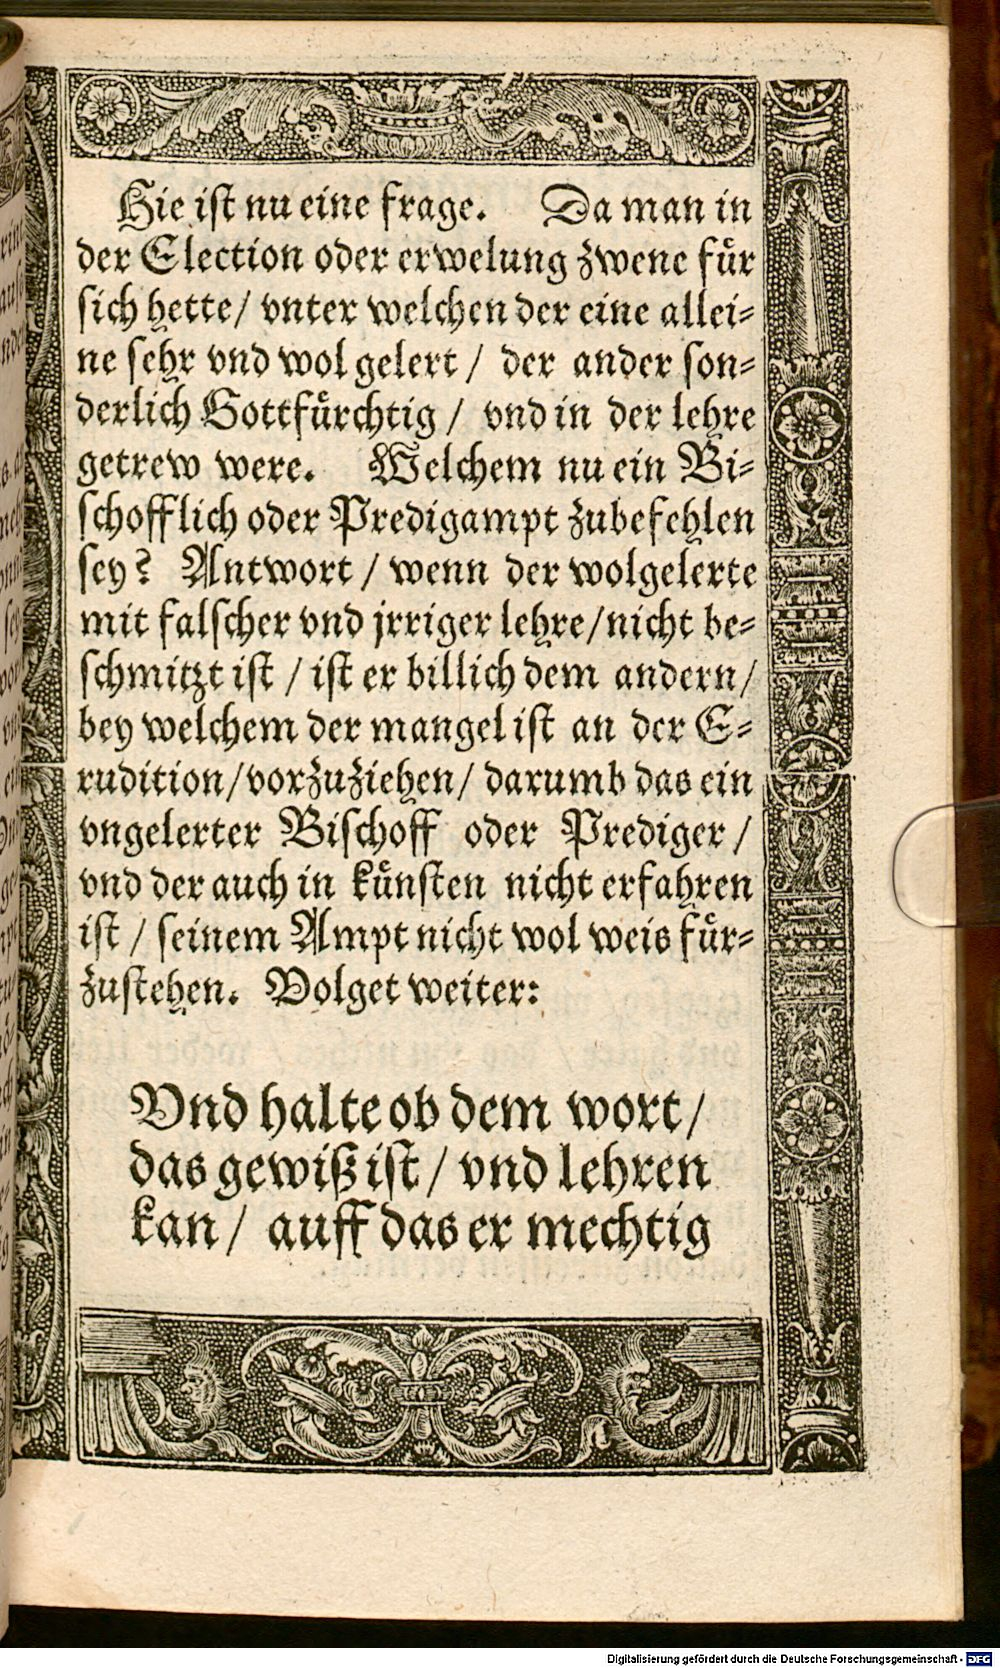 Hie ist nu eine frage. Da man in
der Election oder erwelung zwene fuͤr
sich hette/ vnter welchen der eine allei⸗
ne sehr vnd wol gelert / der ander son⸗
derlich Gottfuͤrchtig / vnd in der lehre
getrew were. Welchem nu ein Bi⸗
schofflich oder Predigampt zubefehlen
sey? Antwort / wenn der wolgelerte
mit falscher vnd jrriger lehre/nicht be⸗
schmitzt ist / ist er billich dem andern/
bey welchem der mangel ist an der E⸗
rudition/vorzuziehen/ darumb das ein
vngelerter Bischoff oder Prediger /
vnd der auch in kuͤnsten nicht erfahren
ist / seinem Ampt nicht wol weis fuͤr⸗
zustehen. Volget weiter:
Vnd halte ob dem wort/
das gewiß ist / vnd lehren
kan / auff das er mechtig
Digitalisierung gefördert durch die Deutsche Forschungsgemeinschaft - DFG